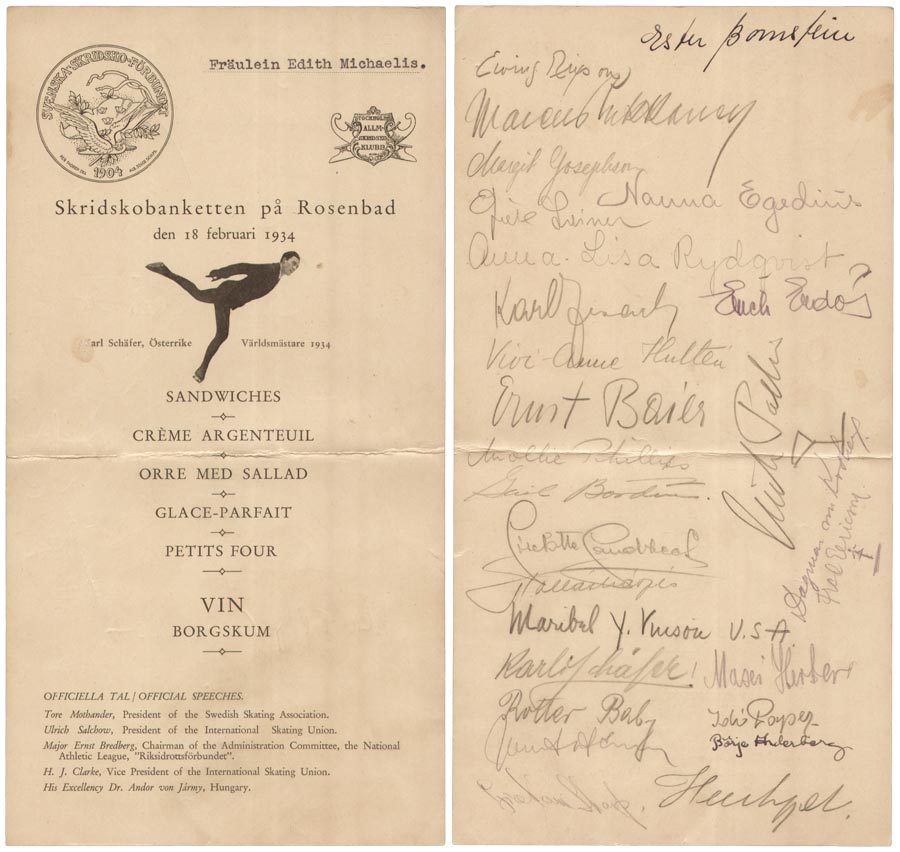 SVENSKA SKRIDSKO-FÖRBUNDET
1904
Fräulein Edith Michaelis.
STOCKHOLMS
ALLM.
SKRIDSKO
KLUBB
Skridskobanketten på Rosenbad
den 18 februari 1934
Karl Schäfer, Österrike Världsmästare 1934
SANDWICHES
CRÈME ARGENTEUIL
ORRE MED SALLAD
GLACE-PARFAIT
PETITS FOUR
VIN
BORGSKUM
OFFICIELLA TAL / OFFICIAL SPEECHES.
Tore Mothander, President of the Swedish Skating Association.
Ulrich Salchow, President of the International Skating Union.
Major Ernst Bredberg, Chairman of the Administration Committee, the National
Athletic League, "Riksidrottsförbundet".
H. J. Clarke, Vice President of the International Skating Union.
His Excellency Dr. Andor von Jármy, Hungary.
Ester Bornstein
Marcus
Margit Josephson
Nanna Egedius
Anna-Lisa Rydqvist
Karl
Erich Erdös
Vivi-Anne Hultén
Ernst Baier
Mollie Phillips
Gail Borden
Liselotte Landbeck
Maribel Y. Vinson U.S.A.
Karl Schäfer!
Maxi Herber
Rotter Baby
Idi Papez
Börje Anderberg
Dagmar